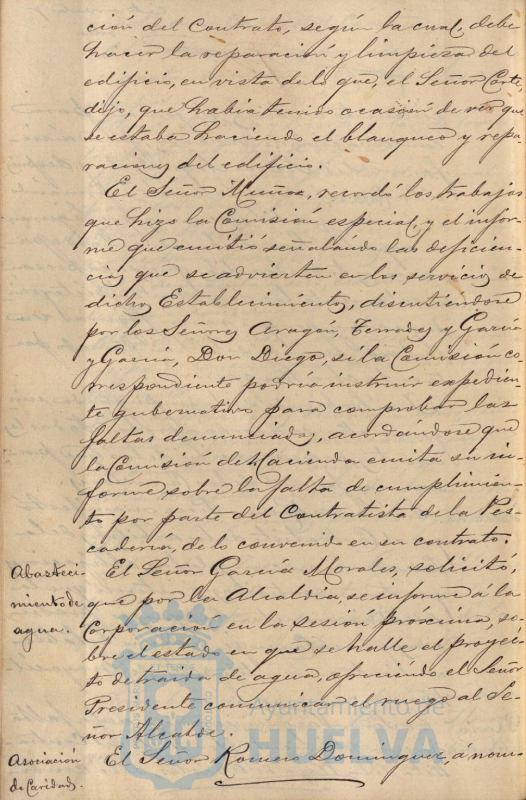 ción del Contrato, según la cual, debe
hacer la reparación y limpieza del
edificio, en vista de lo que, el Señor Corte,
dijo, que había tenido ocasión de ver que
se estaba haciendo el blanqueo y repa-
raciones del edificio.
El Señor Muñoz, recordó los trabajos
que hizo la Comisión especial, y el infor-
me que emitió señalando las deficien-
cias que se advierten en los servicios de
dichos Establecimientos, discutiéndose
por los Señores Aragón, Terrades y García
y García, Don Diego, si la Comisión co-
rrespondiente podría instruir expedien-
te gubernativo para comprobar las
faltas denunciadas, acordándose que
la Comisión de Hacienda emita su in-
forme sobre la falta de cumplimien-
to por parte del Contratista de la Pes-
cadería, de lo convenido en su contrato.
Abasteci-
miento de
agua.
El Señor García Morales, solicitó,
que por la Alcaldía se informe a la
Corporación en la sesión próxima, so-
bre el estado en que se halle el proyec-
to de traida de agua, ofreciendo el Señor
Presidente comunicar el ruego al Se-
ñor Alcalde.
Asociación
de Caridad.
El Señor Romero Dominguez, á nom-
Ayuntamiento de
HUELVA